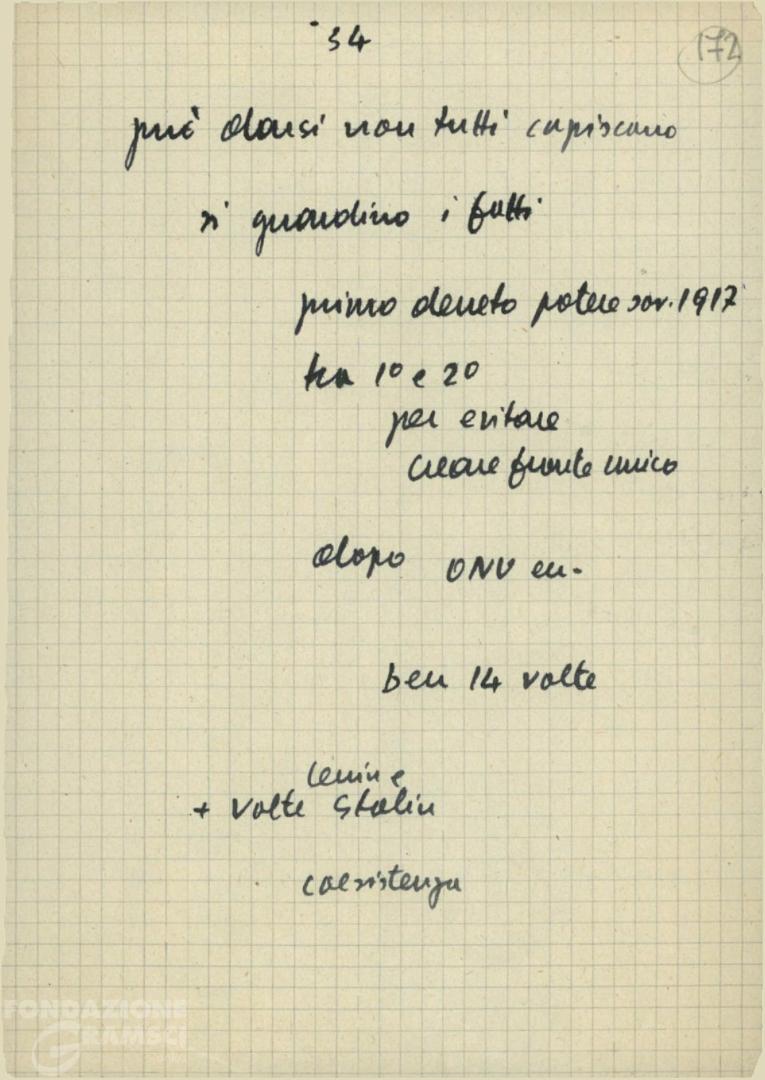 34
172
può darsi non tutti capiscano
si guardino i fatti
primo decreto potere sov. 1917
tra 1º e 2º
per evitare
creare fronte unico
dopo ONU
ben 14 volte
Lenin e
+ volte Stalin
coesistenza
FONDAZIONE
GRAMSCI